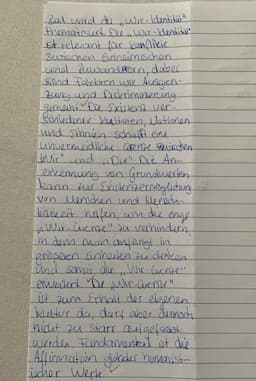 wird die „Wir-Identität"
thematisiert. Die „Wir-Identität"
ist relevant für Konflikte
zwischen Einheimischen
und Zuwanderern, dabei
sind Faktoren wie Ausgren-
zung und Diskriminierung
gemeint. Die Existenz ver-
schiedener Kulturen, Nationen
und Ethnien schafft eine
unvermeidliche Grenze zwischen
„Wir" und „Die". Die An-
erkennung von Grundwerten
kann zur Existenzermöglichung
von Menschen und Mensch-
lichkeit helfen, um die enge
„Wir-Grenze" zu verhindern,
in dem man anfängt in
grösseren Einheiten zu denken
und somit die „Wir-Grenze"
erweitert. Die „Wir-Grenze"
ist zum Erhalt der eigenen
Kultur da, darf aber dennoch
nicht zu starr aufgefasst
werden. Fundamental ist die
Affirmation globaler humanist-
ischer Werte.